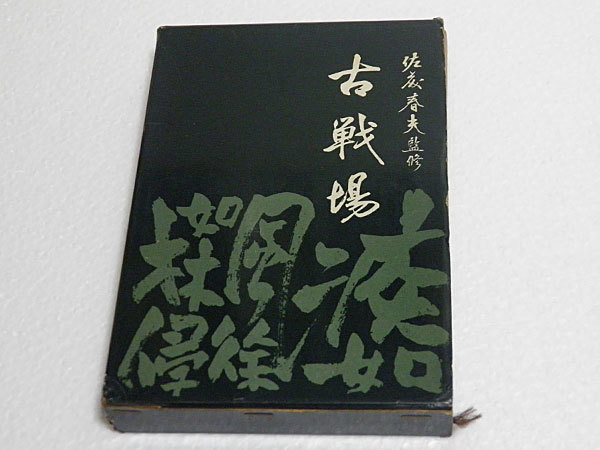 佐藤春夫監修
古戦場
疾如
風徐
如林侵